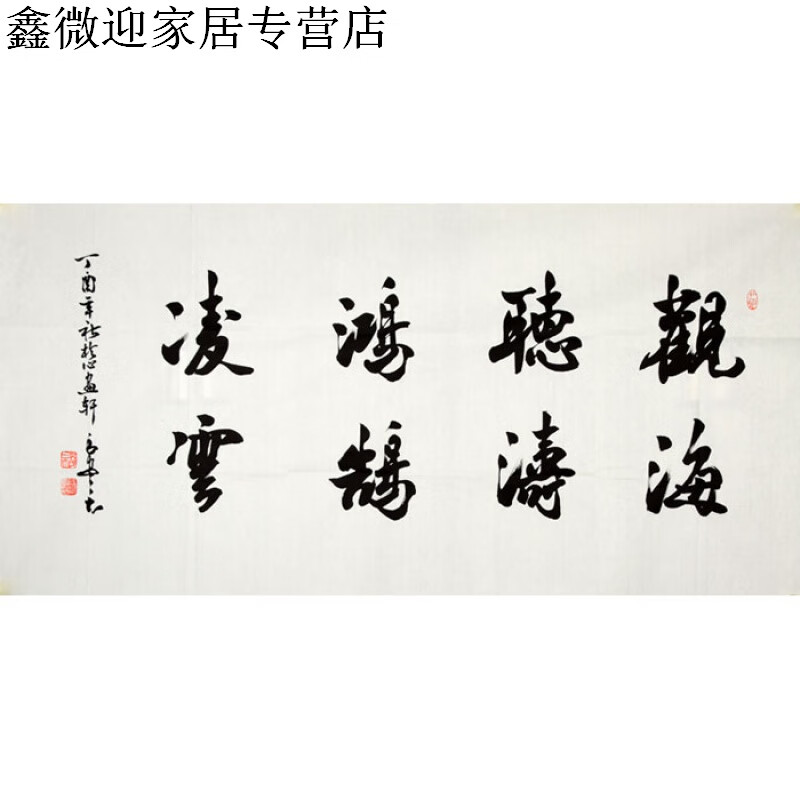 鑫微迎家居专营店
觀海
聽濤
鴻鵠
凌雲
丁酉年